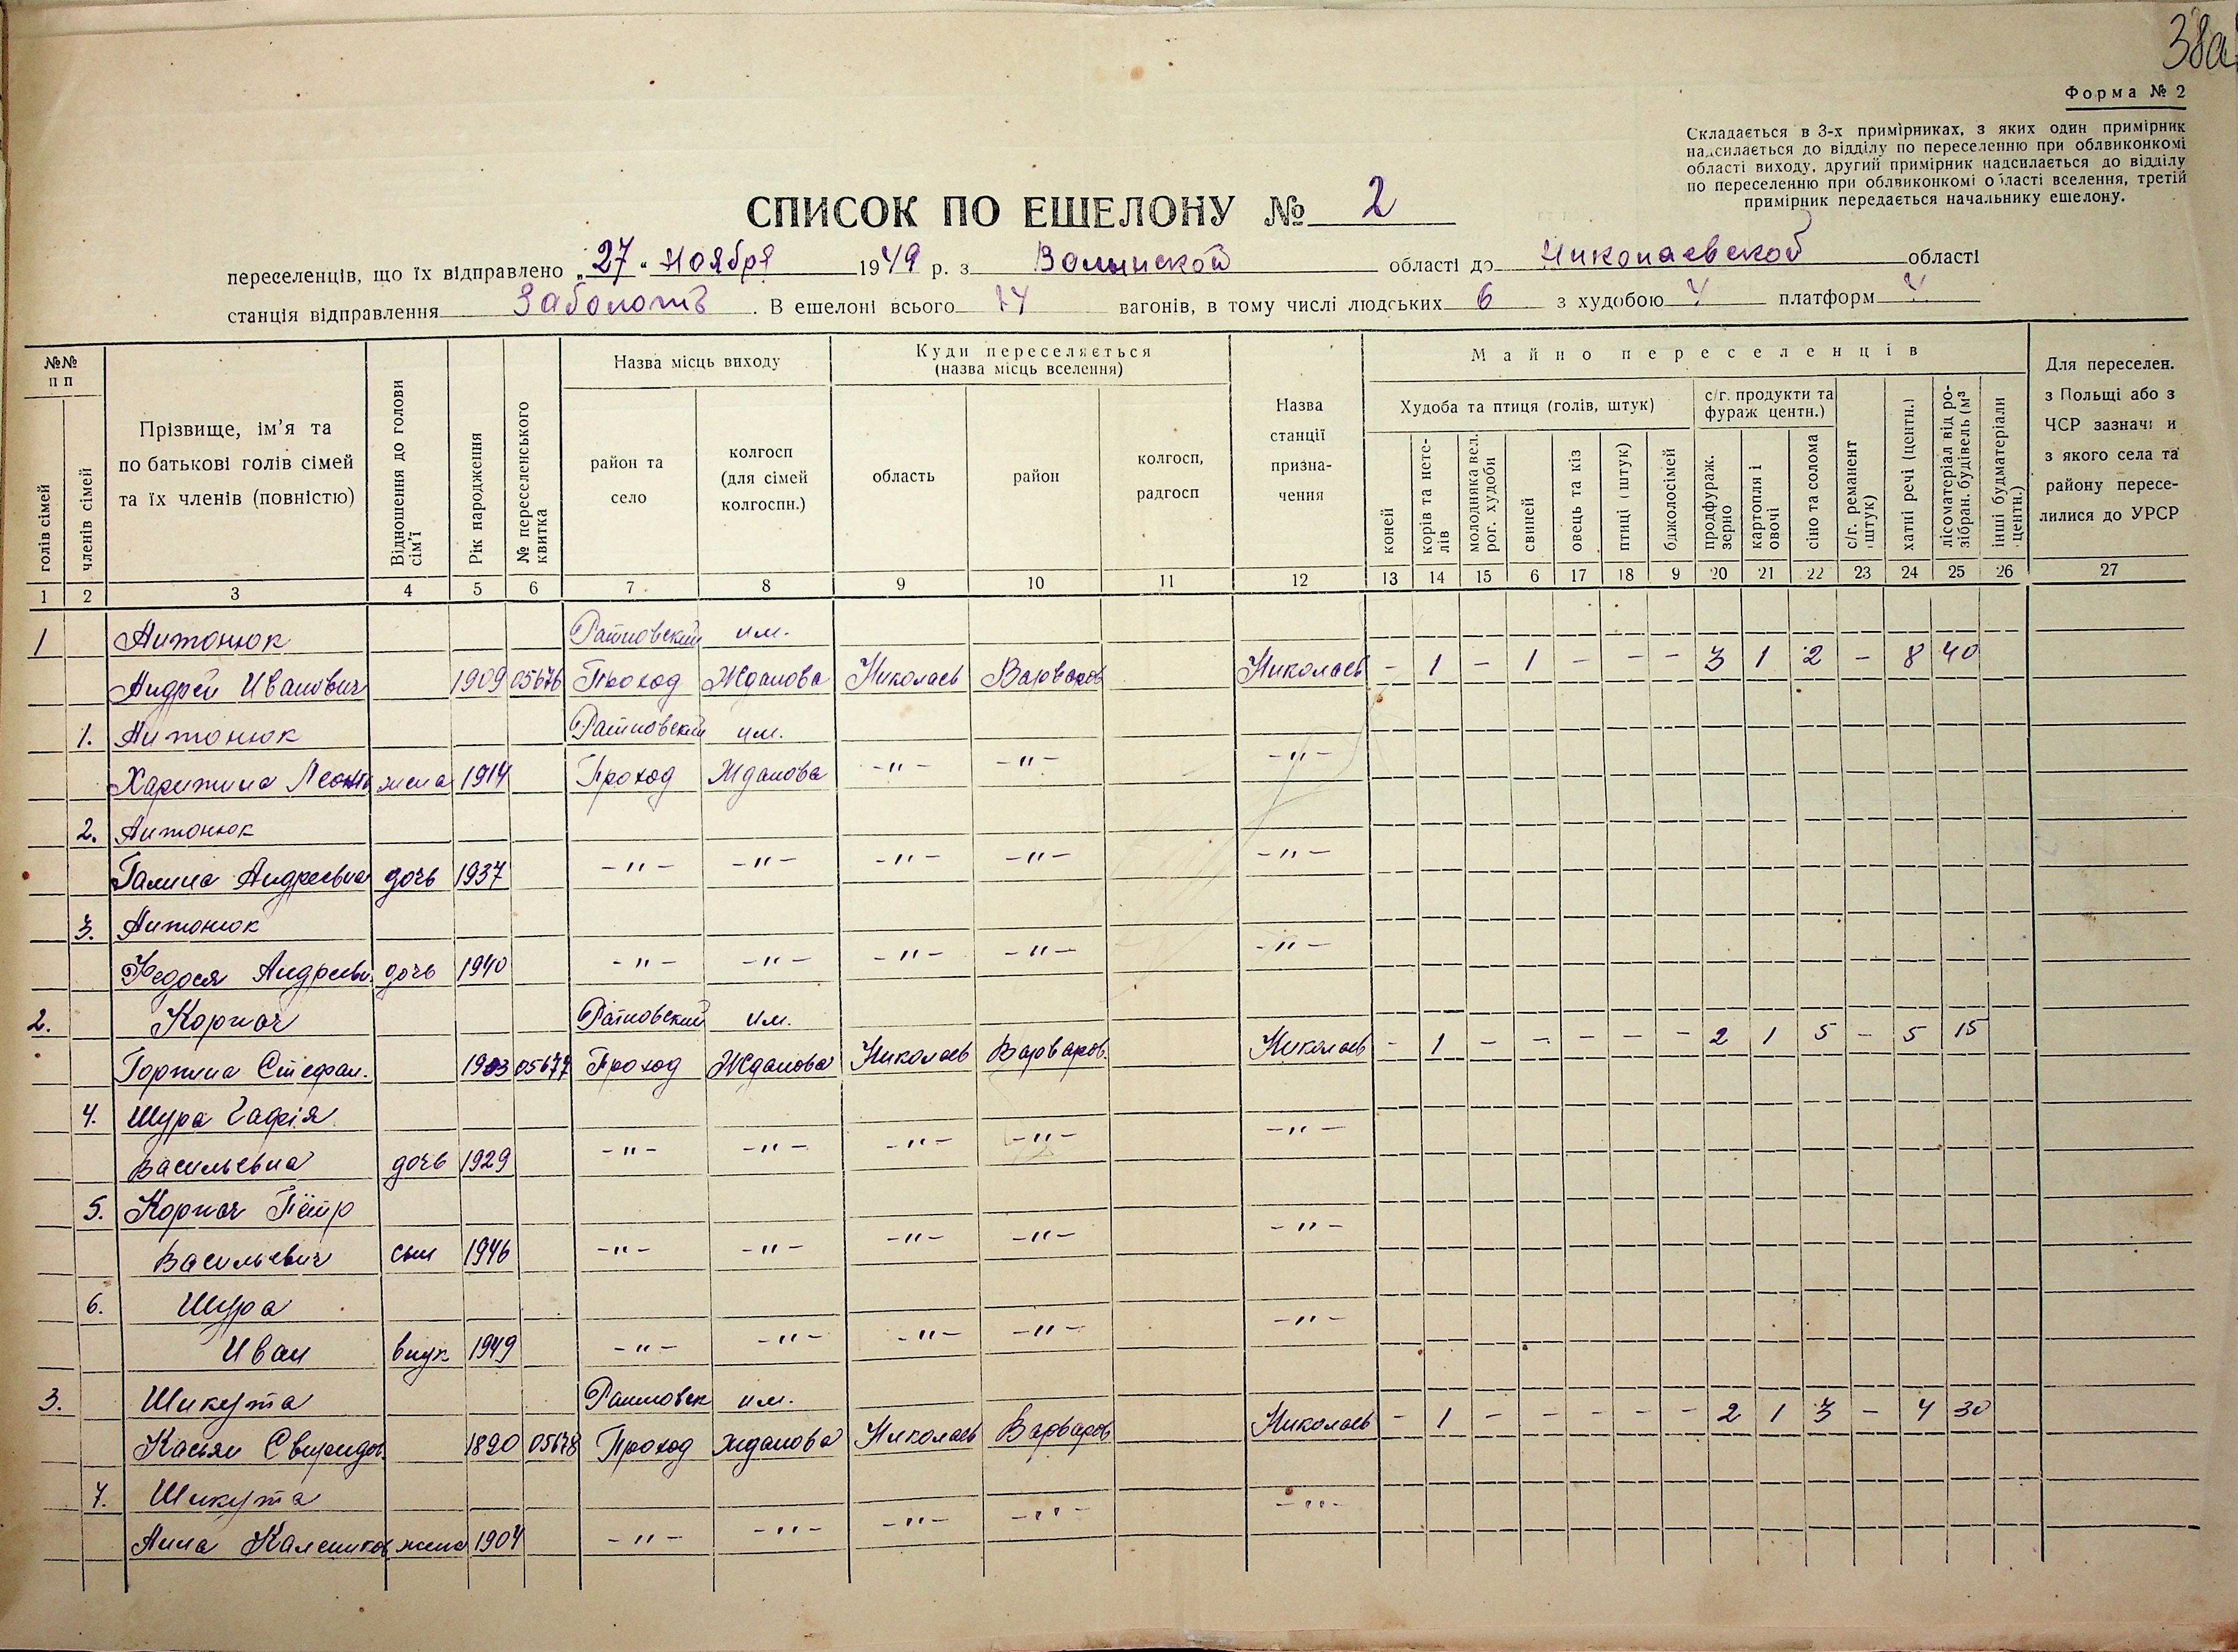 38а
Форма № 2
Складається в 3-х примірниках, з яких один примірник
надсилається до відділу по переселенню при облвиконкомі
області виходу, другий примірник надсилається до відділу
по переселенню при облвиконкомі області вселення, третій
примірник передається начальнику ешелону.
СПИСОК ПО ЕШЕЛОНУ № 2
переселенців, що їх відправлено „27“ Ноября 1949 р. з Волынской області до Николаевской області
станція відправлення Заболоть. В ешелоні всього 14 вагонів, в тому числі людських 6 з худобою 4 платформ 4
№№ п п
голів сімей
членів сімей
Прізвище, ім’я та по батькові голів сімей та їх членів (повністю)
Відношення до голови сім’ї
Рік народження
№ переселенського квитка
Назва місць виходу
район та село
колгосп (для сімей колгоспн.)
Куди переселяється (назва місць вселення)
область
район
колгосп, радгосп
Назва станції призна- чення
Майно переселенців
Худоба та птиця (голів, штук)
коней
корів та нете- лів
молодняка вел. рог. худоби
свиней
овець та кіз
птиці (штук)
бджолосімей
с/г. продукти та фураж центн.)
продфураж. зерно
картопля і овочі
сіно та солома
с/г. реманент (штук)
хатні речі (центн.)
лісоматеріал від ро- зібран. будівель (м³
інші будматеріали центн.)
Для переселен. з Польщі або з ЧСР зазначи и з якого села та району пересе- лилися до УРСР
1 2 3 4 5 6 7 8 9 10 11 12 13 14 15 6 17 18 9 20 21 22 23 24 25 26 27
1 Антонюк Ратновский им.
Андрей Иванович 1909 05676 Проход Жданова Николаев Варваров Николаев - 1 - 1 - - - 3 1 2 - 8 40
1. Антонюк Ратновский им.
Харитина Леонт. жена 1914 Проход Жданова -"- -"- -"-
2. Антонюк
Галина Андреевна дочь 1937 -"- -"- -"- -"- -"-
3. Антонюк
Федося Андреевн. дочь 1940 -"- -"- -"- -"- -"-
2. Корнач Ратновский им.
Горпина Стефан. 1903 05677 Проход Жданова Николаев Варваров. Николаев - 1 - - - - - 2 1 5 - 5 15
4. Шура Гафія
Васильевна дочь 1929 -"- -"- -"- -"- -"-
5. Корнач Пётр
Васильевич сын 1946 -"- -"- -"- -"- -"-
6. Шура
Иван внук 1949 -"- -"- -"- -"- -"-
3. Шикута Ратновск им.
Касьян Свиридов. 1890 05678 Проход Жданова Николаев Варваров Николаев - 1 - - - - - 2 1 3 - 4 30
7. Шикута
Анна Калеников жена 1904 -"- -"- -"- -"- -"-